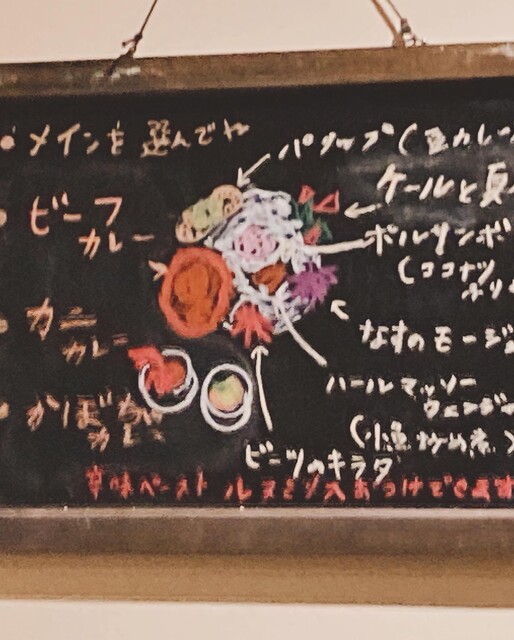 ・メインを選んでや
・ビーフ
カレー
・カニ
カレー
・かぼちゃ
カレー
パパダップ(豆カレー
ケールと真
ポルサンボ
(ココナツ
なすのモージュ
ハールマッソー
(小魚炒め煮)
ビーツのキラタ
辛味ペースト ルヌミリスおつけできます